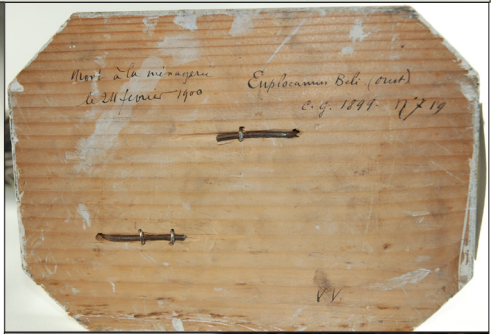 Mort à la ménagerie
le 24 février 1900
Euplocamus Beli (oust)
C. G. 1899- N° 719
V.V.